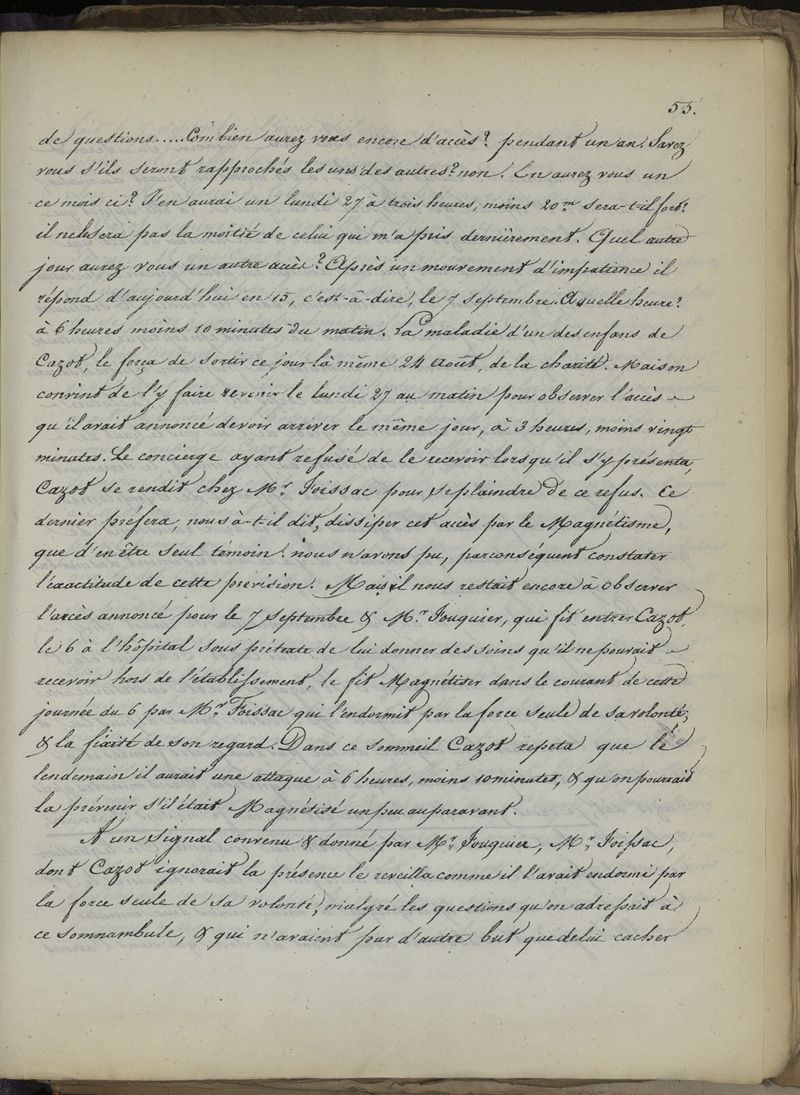 55.
de questions.....Combien aurez vous encore d'accès? pendant un an. Savez
vous s'ils seront rapprochés les uns des autres? non. En aurez vous un
ce mois ci? J'en aurai un lundi 27 à trois heures, moins 20m sera-t-il fort?
il ne le sera pas la moitié de celui qui m'a pris dernièrement. Quel autre
jour aurez vous un autre accès? Après un mouvement d'impatience il
répond d'aujourd'hui en 15, c'est-à-dire, le 7 septembre. A quelle heure?
à 6 heures moins 10 minutes du matin. La maladie d'un des enfans de
Cazot, le força de sortir ce jour-là même 24 août, de la charité. Mais on
convint de l'y faire revenir le lundi 27 au matin pour observer l'accès
qu'il avait annoncé devoir arriver le même jour, à 3 heures, moins vingt
minutes. Le concierge ayant refusé de le recevoir lorsqu'il s'y présenta,
Cazot se rendit chez Mr Foissac pour se plaindre de ce refus. Ce
dernier préfera, nous à-t-il dit, dissiper cet accès par le Magnétisme,
que d'en être seul témoin: nous n'avons pu, par conséquent constater
l'éxactitude de cette prévision. Mais il nous restait encore à observer
l'accès annoncé pour le 7 septembre & Mr Fouquier, qui fit entrer Cazot,
le 6 à l'hôpital sous prétexte de lui donner des soins qu'il ne pouvait
recevoir hors de l'établissement, le fit Magnétiser dans le courant de cette
journée du 6 par Mr Foissac qui l'endormit par la force seule de sa volonté,
& la fixité de son regard. Dans ce sommeil Cazot repeta que le
lendemain il aurait une attaque à 6 heures, moins 10 minutes, & qu'on pourrait
la prévenir s'il était Magnétisé un peu auparavant.
A un signal convenu & donné par Mr Fouquier, Mr Foissac,
dont Cazot ignorait la présence le reveilla comme il l'avait endormi par
la force seule de sa volonté, malgré les questions qu'on adressait à
ce somnambule, & qui n'avaient par d'autre but que de lui cacher